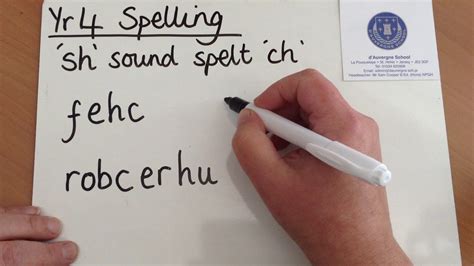 Yr4 Spelling
'sh' sound spelt 'ch'
fehc
robcerhu
d'Auvergne School